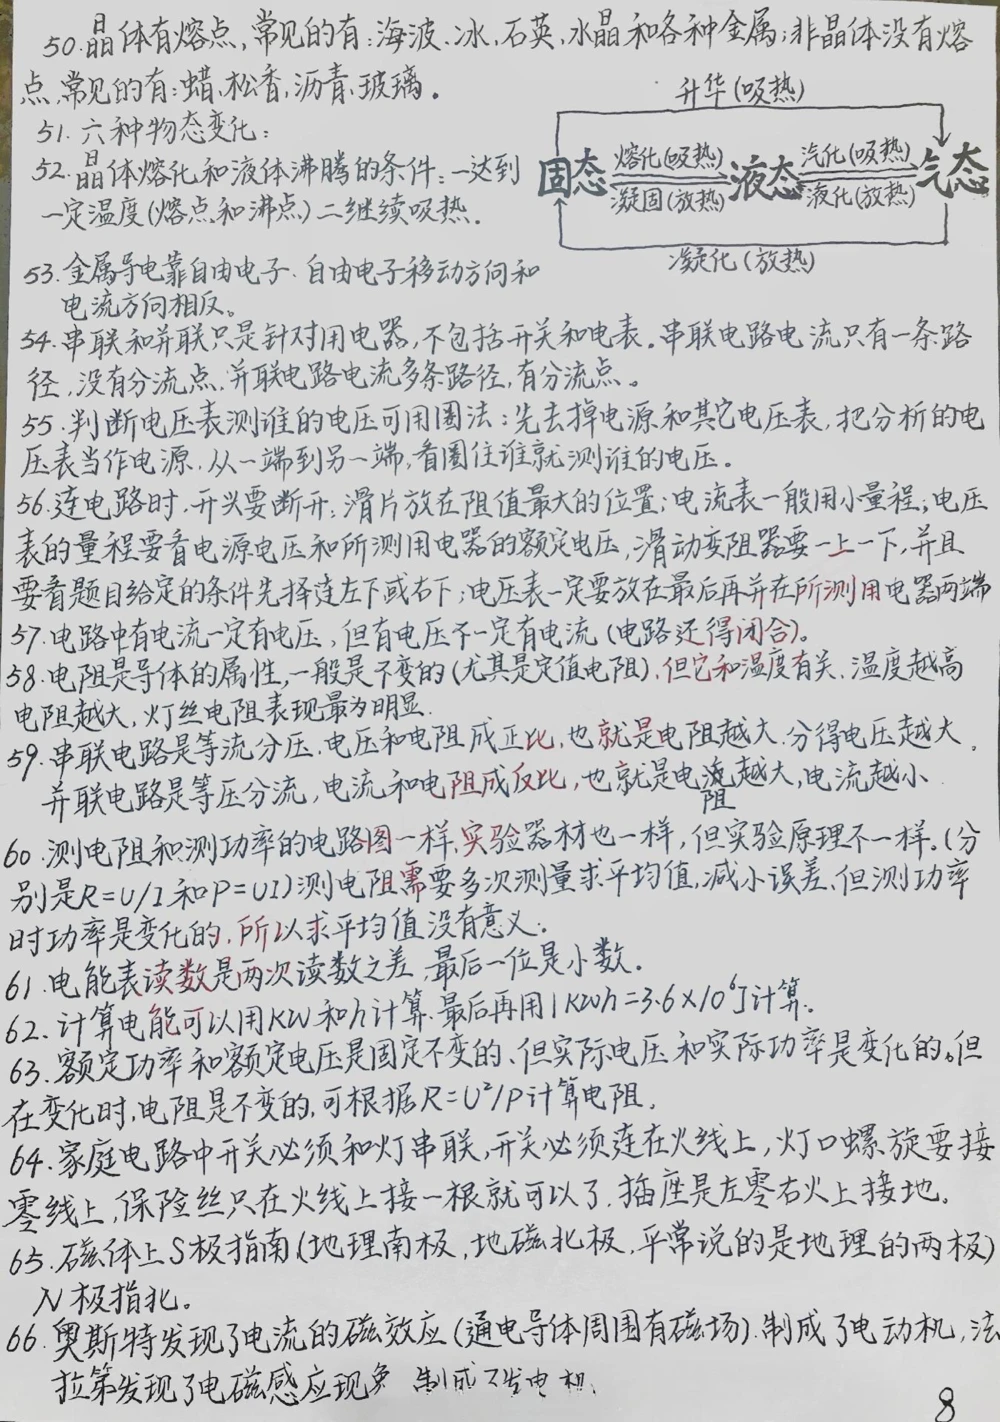 50.晶体有熔点,常见的有:海波、冰,石英,水晶和各种金属;非晶体没有熔
点,常见的有:蜡,松香,沥青,玻璃。
升华(吸热)
51.六种物态变化:
固态 熔化(吸热) 液态 汽化(吸热) 气态
凝固(放热) 液化(放热)
52.晶体熔化和液体沸腾的条件:一达到
一定温度(熔点和沸点)二继续吸热.
凝化(放热)
53.金属导电靠自由电子.自由电子移动方向和
电流方向相反。
54.串联和并联只是针对用电器,不包括开关和电表.串联电路电流只有一条路
径,没有分流点.并联电路电流多条路径,有分流点。
55.判断电压表测谁的电压可用圈法:先去掉电源和其它电压表,把分析的电
压表当作电源,从一端到另一端,看圈住谁就测谁的电压。
56.连电路时,开关要断开;滑片放在阻值最大的位置;电流表一般用小量程;电压
表的量程要看电源电压和所测用电器的额定电压,滑动变阻器要一上一下,并且
要看题目给定的条件先择连左下或右下;电压表一定要放在最后再并在所测用电器两端
57.电路中有电流一定有电压,但有电压不一定有电流(电路还得闭合)。
58.电阻是导体的属性,一般是不变的(尤其是定值电阻),但它和温度有关.温度越高
电阻越大,灯丝电阻表现最为明显.
59.串联电路是等流分压.电压和电阻成正比,也就是电阻越大.分得电压越大.
并联电路是等压分流,电流和电阻成反比,也就是电流越大,电流越小
阻
60.测电阻和测功率的电路图一样,实验器材也一样,但实验原理不一样.(分
别是R=U/I和P=UI)测电阻需要多次测量求平均值,减小误差,但测功率
时功率是变化的,所以求平均值没有意义.
61.电能表读数是两次读数之差,最后一位是小数.
62.计算电能可以用KW和h计算.最后再用1KWh=3.6×10⁶J计算.
63.额定功率和额定电压是固定不变的、但实际电压和实际功率是变化的。但
在变化时,电阻是不变的,可根据R=U²/P计算电阻.
64.家庭电路中开关必须和灯串联,开关必须连在火线上,灯口螺旋要接
零线上,保险丝只在火线上接一根就可以了.插座是左零右火上接地.
65.磁体上S极指南(地理南极,地磁北极,平常说的是地理的两极)
N极指北。
66.奥斯特发现了电流的磁效应(通电导体周围有磁场).制成了电动机,法
拉第发现了电磁感应现象 制成了发电机.
8